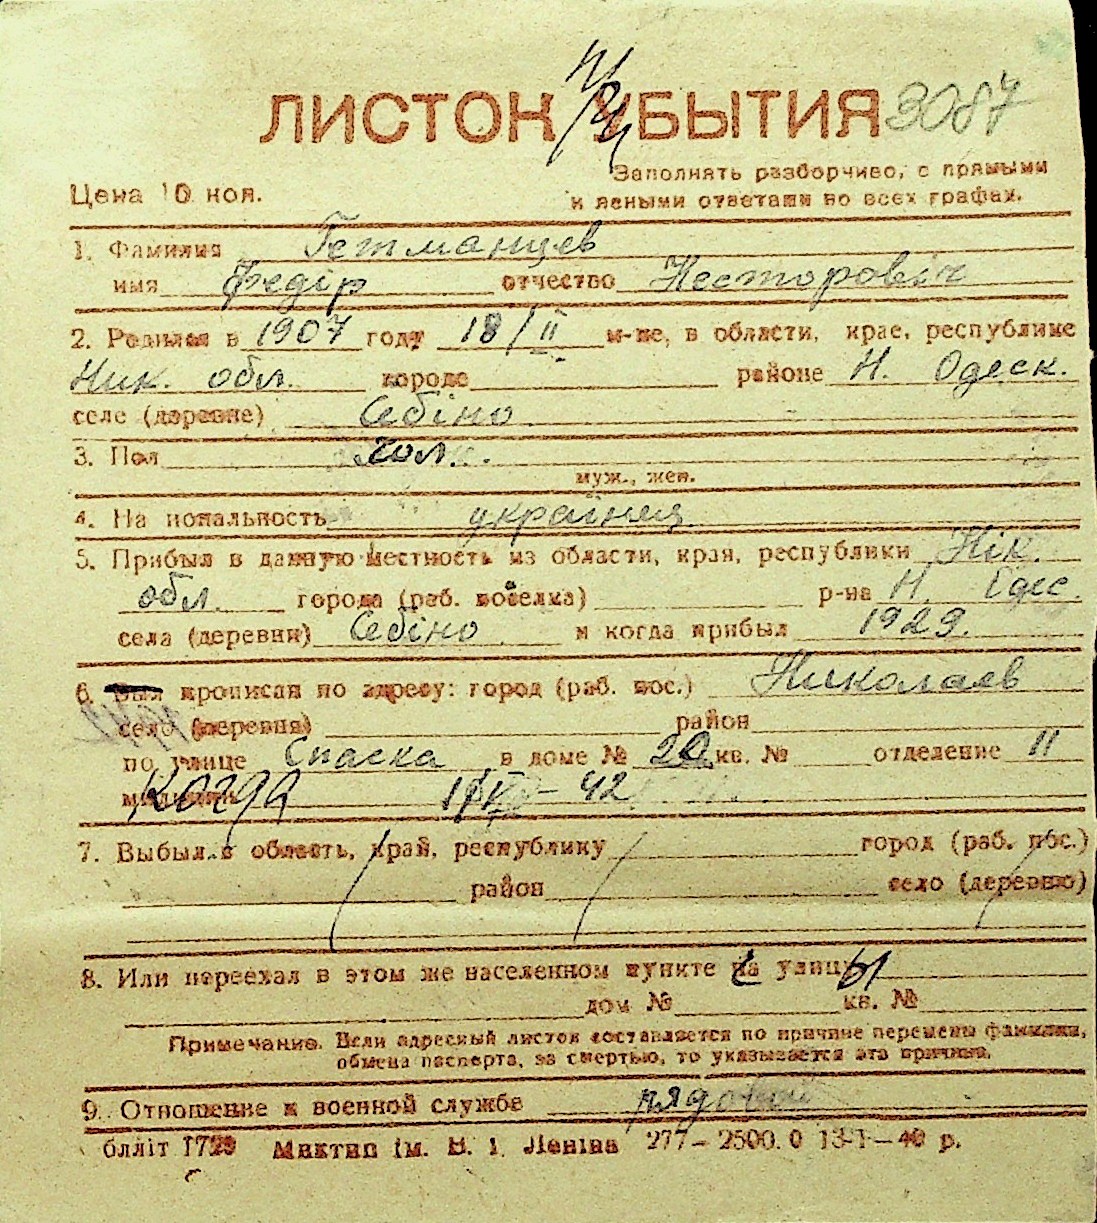 ЛИСТОК УБЫТИЯ 3087
Заполнять разборчиво, с прямыми
Цена 10 коп. и ясными ответами во всех графах.
1. Фамилия Гетманцев
имя Федір отчество Несторовіч
2. Родился в 1907 году 18/II м-це, в области, крае, республике
Ник. обл. городе районе Н. Одеск.
селе (деревне) Себіно
3. Пол чол.
муж., жен.
4. Национальность українец
5. Прибыл в данную местность из области, края, республики Нік.
обл. города (раб. поселка) р-на Н. Одес.
села (деревни) Себіно и когда прибыл 1929.
6. Был прописан по адресу: город (раб. пос.) Николаев
село (деревня) район
по улице Спаска в доме № 20 кв. № отделение 11
милиции Когда - 42
7. Выбыл в область, край, республику город (раб. пос.)
район село (деревню)
8. Или переехал в этом же населенном пункте на улицу
дом № кв. №
Примечание. Если адресный листок составляется по причине перемены фамилии,
обмена паспорта, за смертью, то указывается эта причина.
9. Отношение к военной службе рядовой
бпліт 1729 Миктип ім. В. І. Леніна 277–2500.0 13-I–40 р.